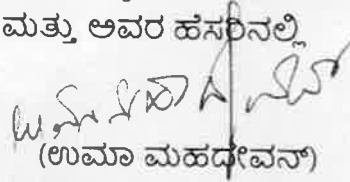 ಮತ್ತು ಅವರ ಹೆಸರಿನಲ್ಲಿ
(ಉಮಾ ಮಹದೇವನ್)